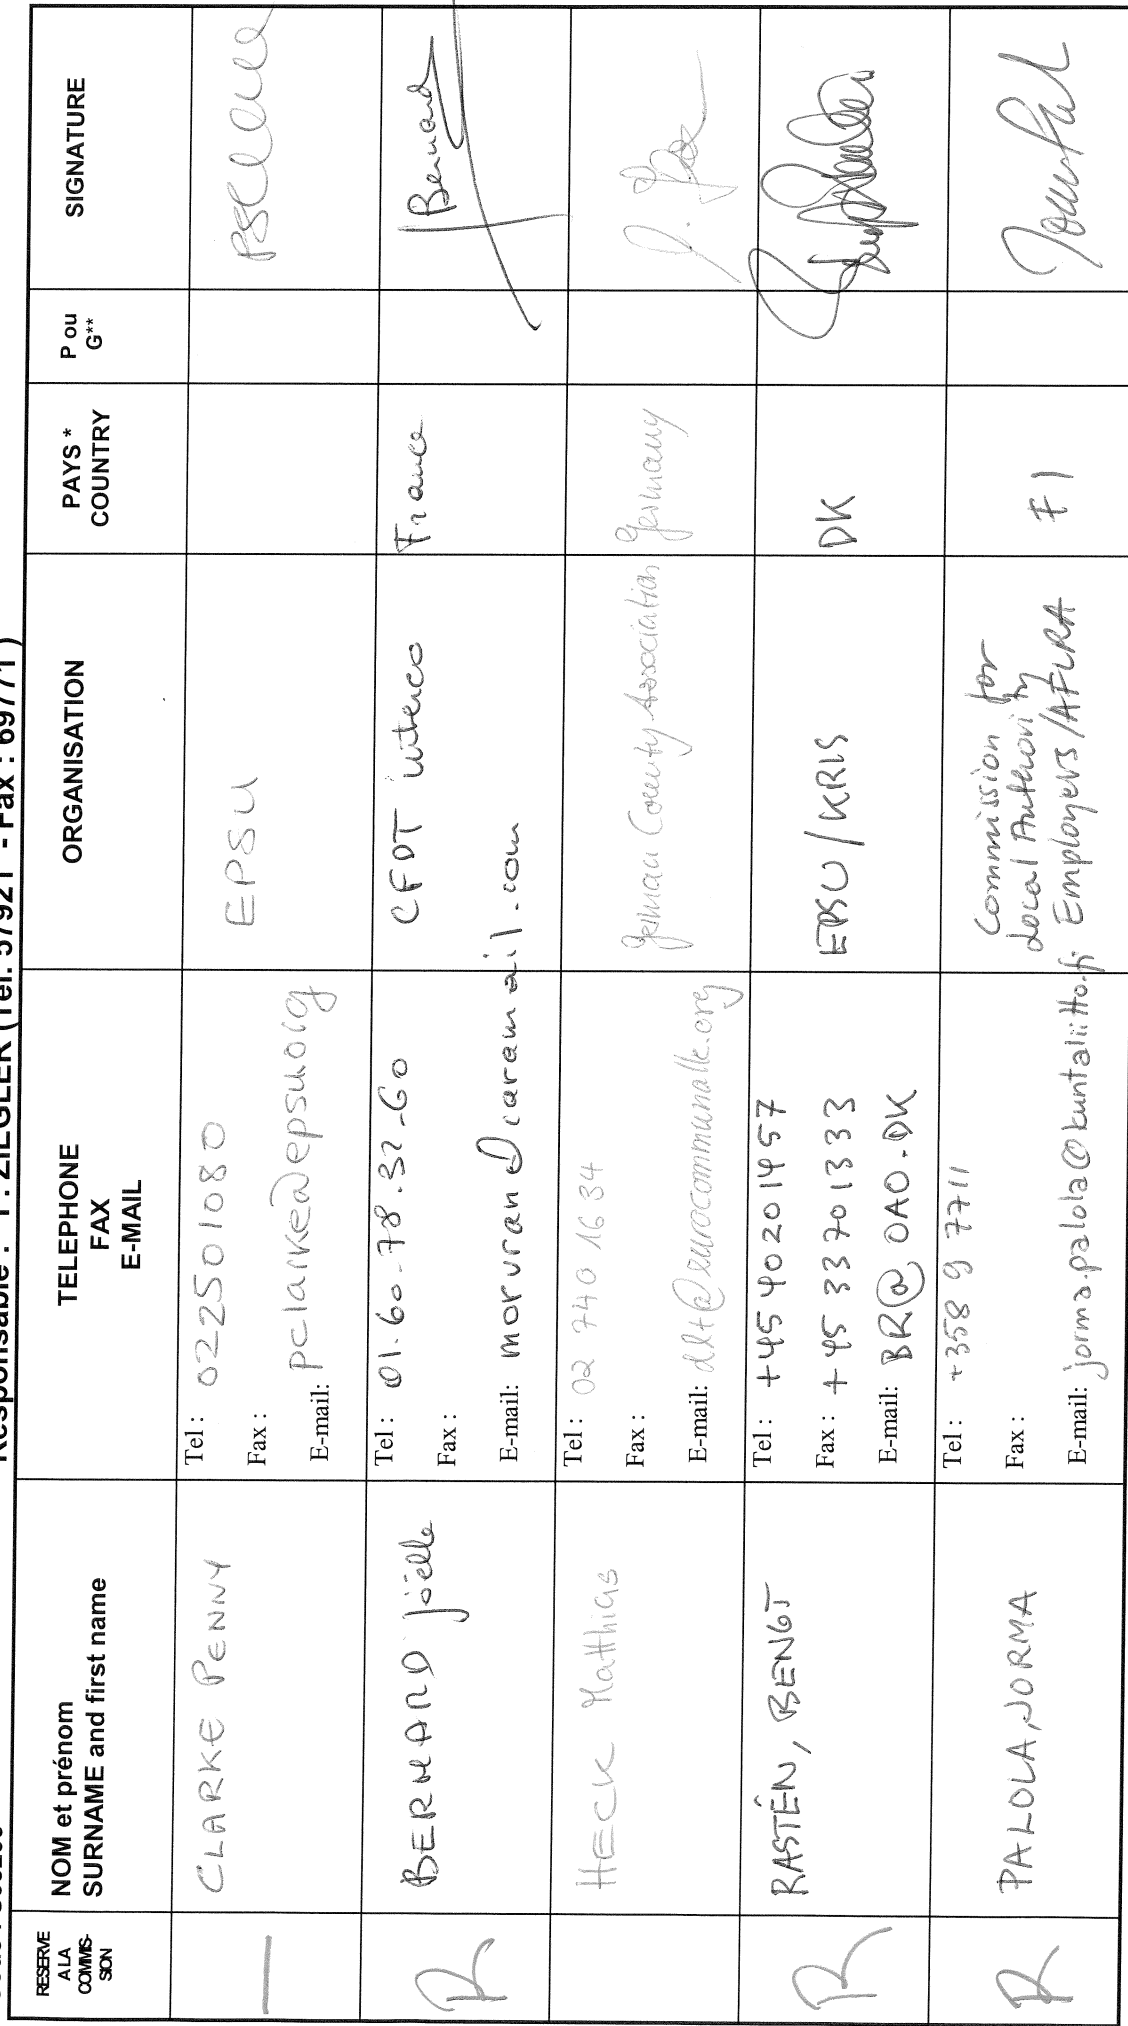 Responsable : P. ZIEGLER (Tel. 57921 - Fax : 69771 )
RESERVE
A LA
COMMIS-
SION
NOM et prénom
SURNAME and first name
TELEPHONE
FAX
E-MAIL
ORGANISATION
PAYS *
COUNTRY
P ou
G**
SIGNATURE
—
CLARKE PENNY
Tel : 022501080
Fax :
E-mail: pclarke@epsu.org
EPSU
pclarke
R
BERNARD joëlle
Tel : 01.60.78.32.60
Fax :
E-mail: morvran@caramail.com
CFDT interco
France
Bernard
HECK Matthias
Tel : 02 740 16 34
Fax :
E-mail: dlt@eurocommunalle.org
German County Association
Germany
R
RASTÉN, BENGT
Tel : +45 40201457
Fax : +45 33701333
E-mail: BR@OAO.DK
EPSU/KRIS
DK
R
PALOLA, JORMA
Tel : +358 9 7711
Fax :
E-mail: jorma.palola@kuntaliitto.fi
Commission for
Local Authority
Employers/AFLRA
FI